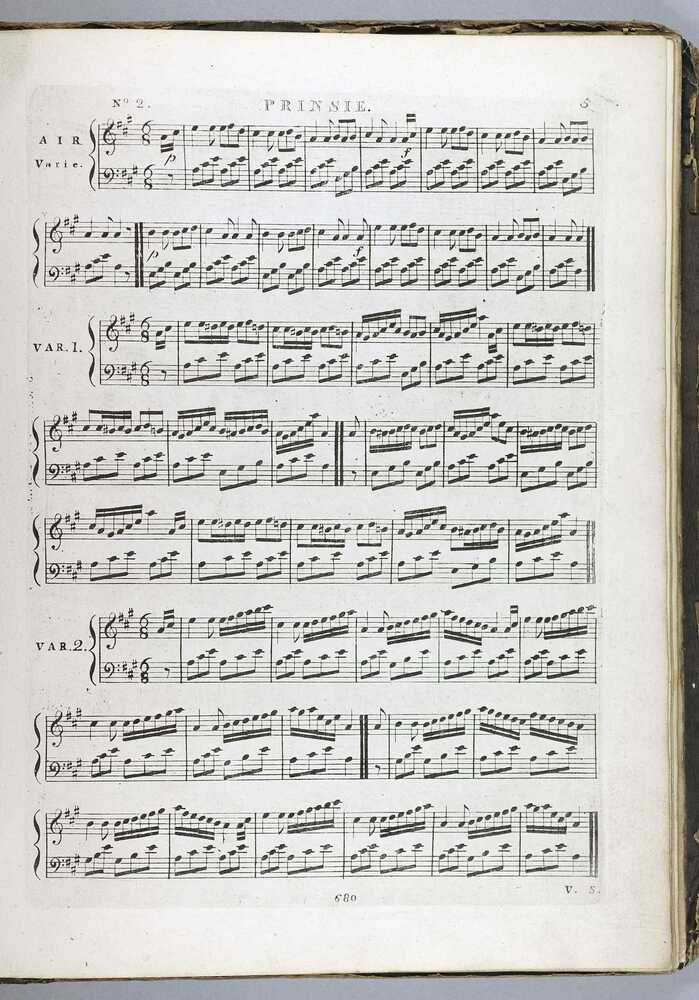 Nº 2. PRINSIE. 5
AIR
Varie.
p f
p f
VAR.1.
VAR.2.
V. S.
680